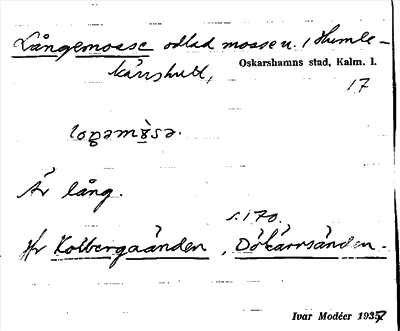 Långemosse odlad mosse u. / Humle-
kärrshult, Oskarshamns stad, Kalm. l.
17
Är lång.
s. 170.
Jfr Kolbergaänden, Dökärrsänden.
Ivar Modéer 1937